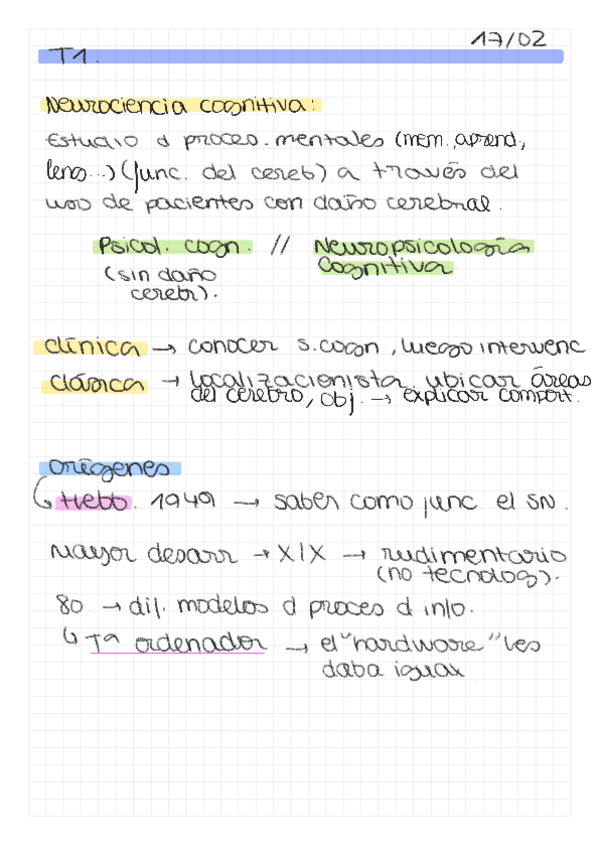 17/02
T1.
Neurociencia cognitiva:
Estudio d proces. mentales (mem, aprend,
leng...) (func. del cereb) a través del
uso de pacientes con daño cerebral.
Psicol. cogn. // Neuropsicología
(sin daño Cognitiva
cerebr).
clínica → conocer s.cogn, luego intervenc
clásica → localizacionista. ubicar áreas
del cerebro, obj. → explicar comport.
orígenes
↳ Hebb. 1949 → saber como func el SN.
Mayor desarr → XIX → rudimentario
(no tecnolog).
80 → dif. modelos d proces d info.
↳ Tª ordenador → el "hardware" les
daba igual